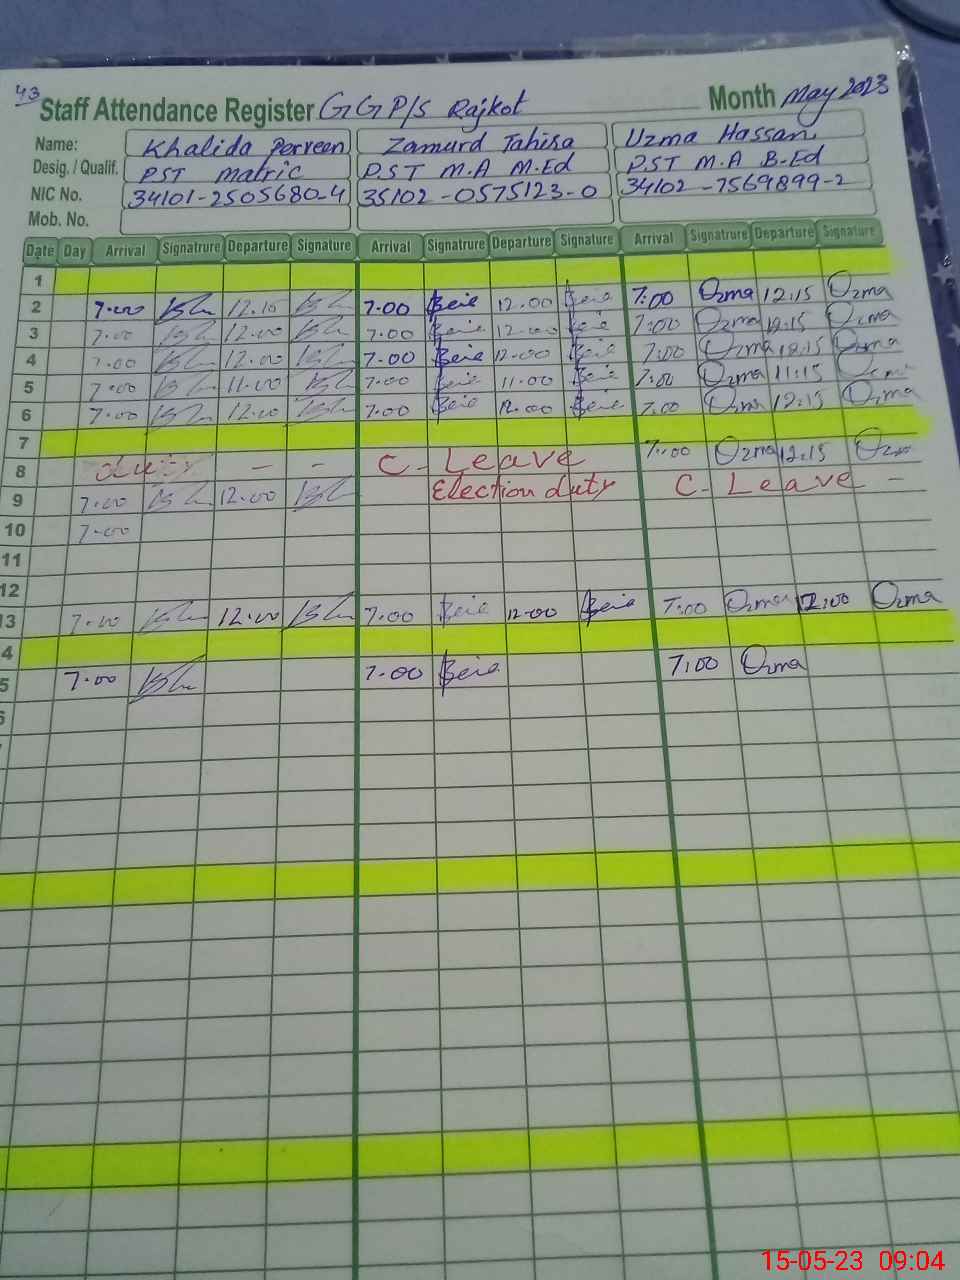 43
Staff Attendance Register GGP/S Rajkot Month May 2023
Name: Khalida Perveen Zamurd Tahira Uzma Hassan
Desig. / Qualif. PST Matric P.S.T M.A M.Ed P.S.T M.A B.Ed
NIC No. 34101-2505680-4 35102-0575123-0 34102-7569899-2
Mob. No.
Date Day Arrival Signatrure Departure Signature Arrival Signatrure Departure Signature Arrival Signatrure Departure Signature
1
2 7:00 12.10 7.00 12.00 7:00 Ozma 12:15 Ozma
3 7:00 12:00 7.00 12:00 7:00 Ozma 12:15 Ozma
4 7:00 12:00 7.00 12:00 7:00 Ozma 12:15 Ozma
5 7:00 11:00 7:00 11:00 7:00 Ozma 11:15 Ozma
6 7:00 12:00 7:00 12:00 7:00 Ozma 12:15 Ozma
7
8 - - C. Leave 7:00 Ozma 12:15 Ozma
9 7:00 12:00 Election duty C. Leave -
10 7:00
11
12
13 7:00 12:00 7:00 12:00 7:00 Ozma 12:00 Ozma
4
5 7:00 7.00 7:00 Ozma
6
15-05-23 09:04